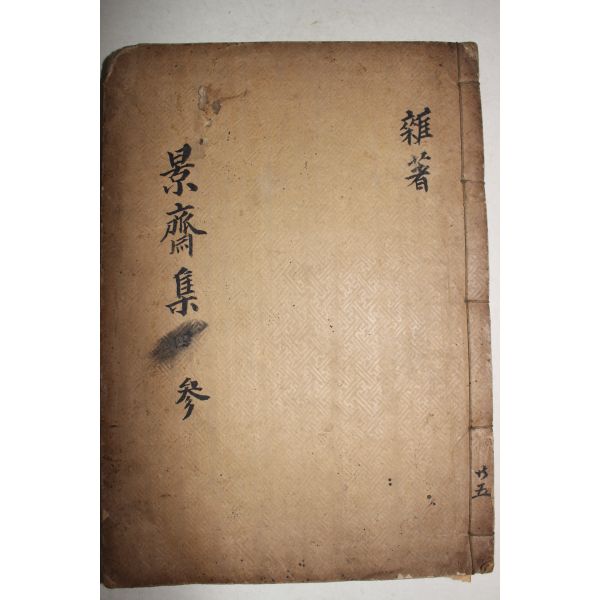 雜著
景齋集
參
共五